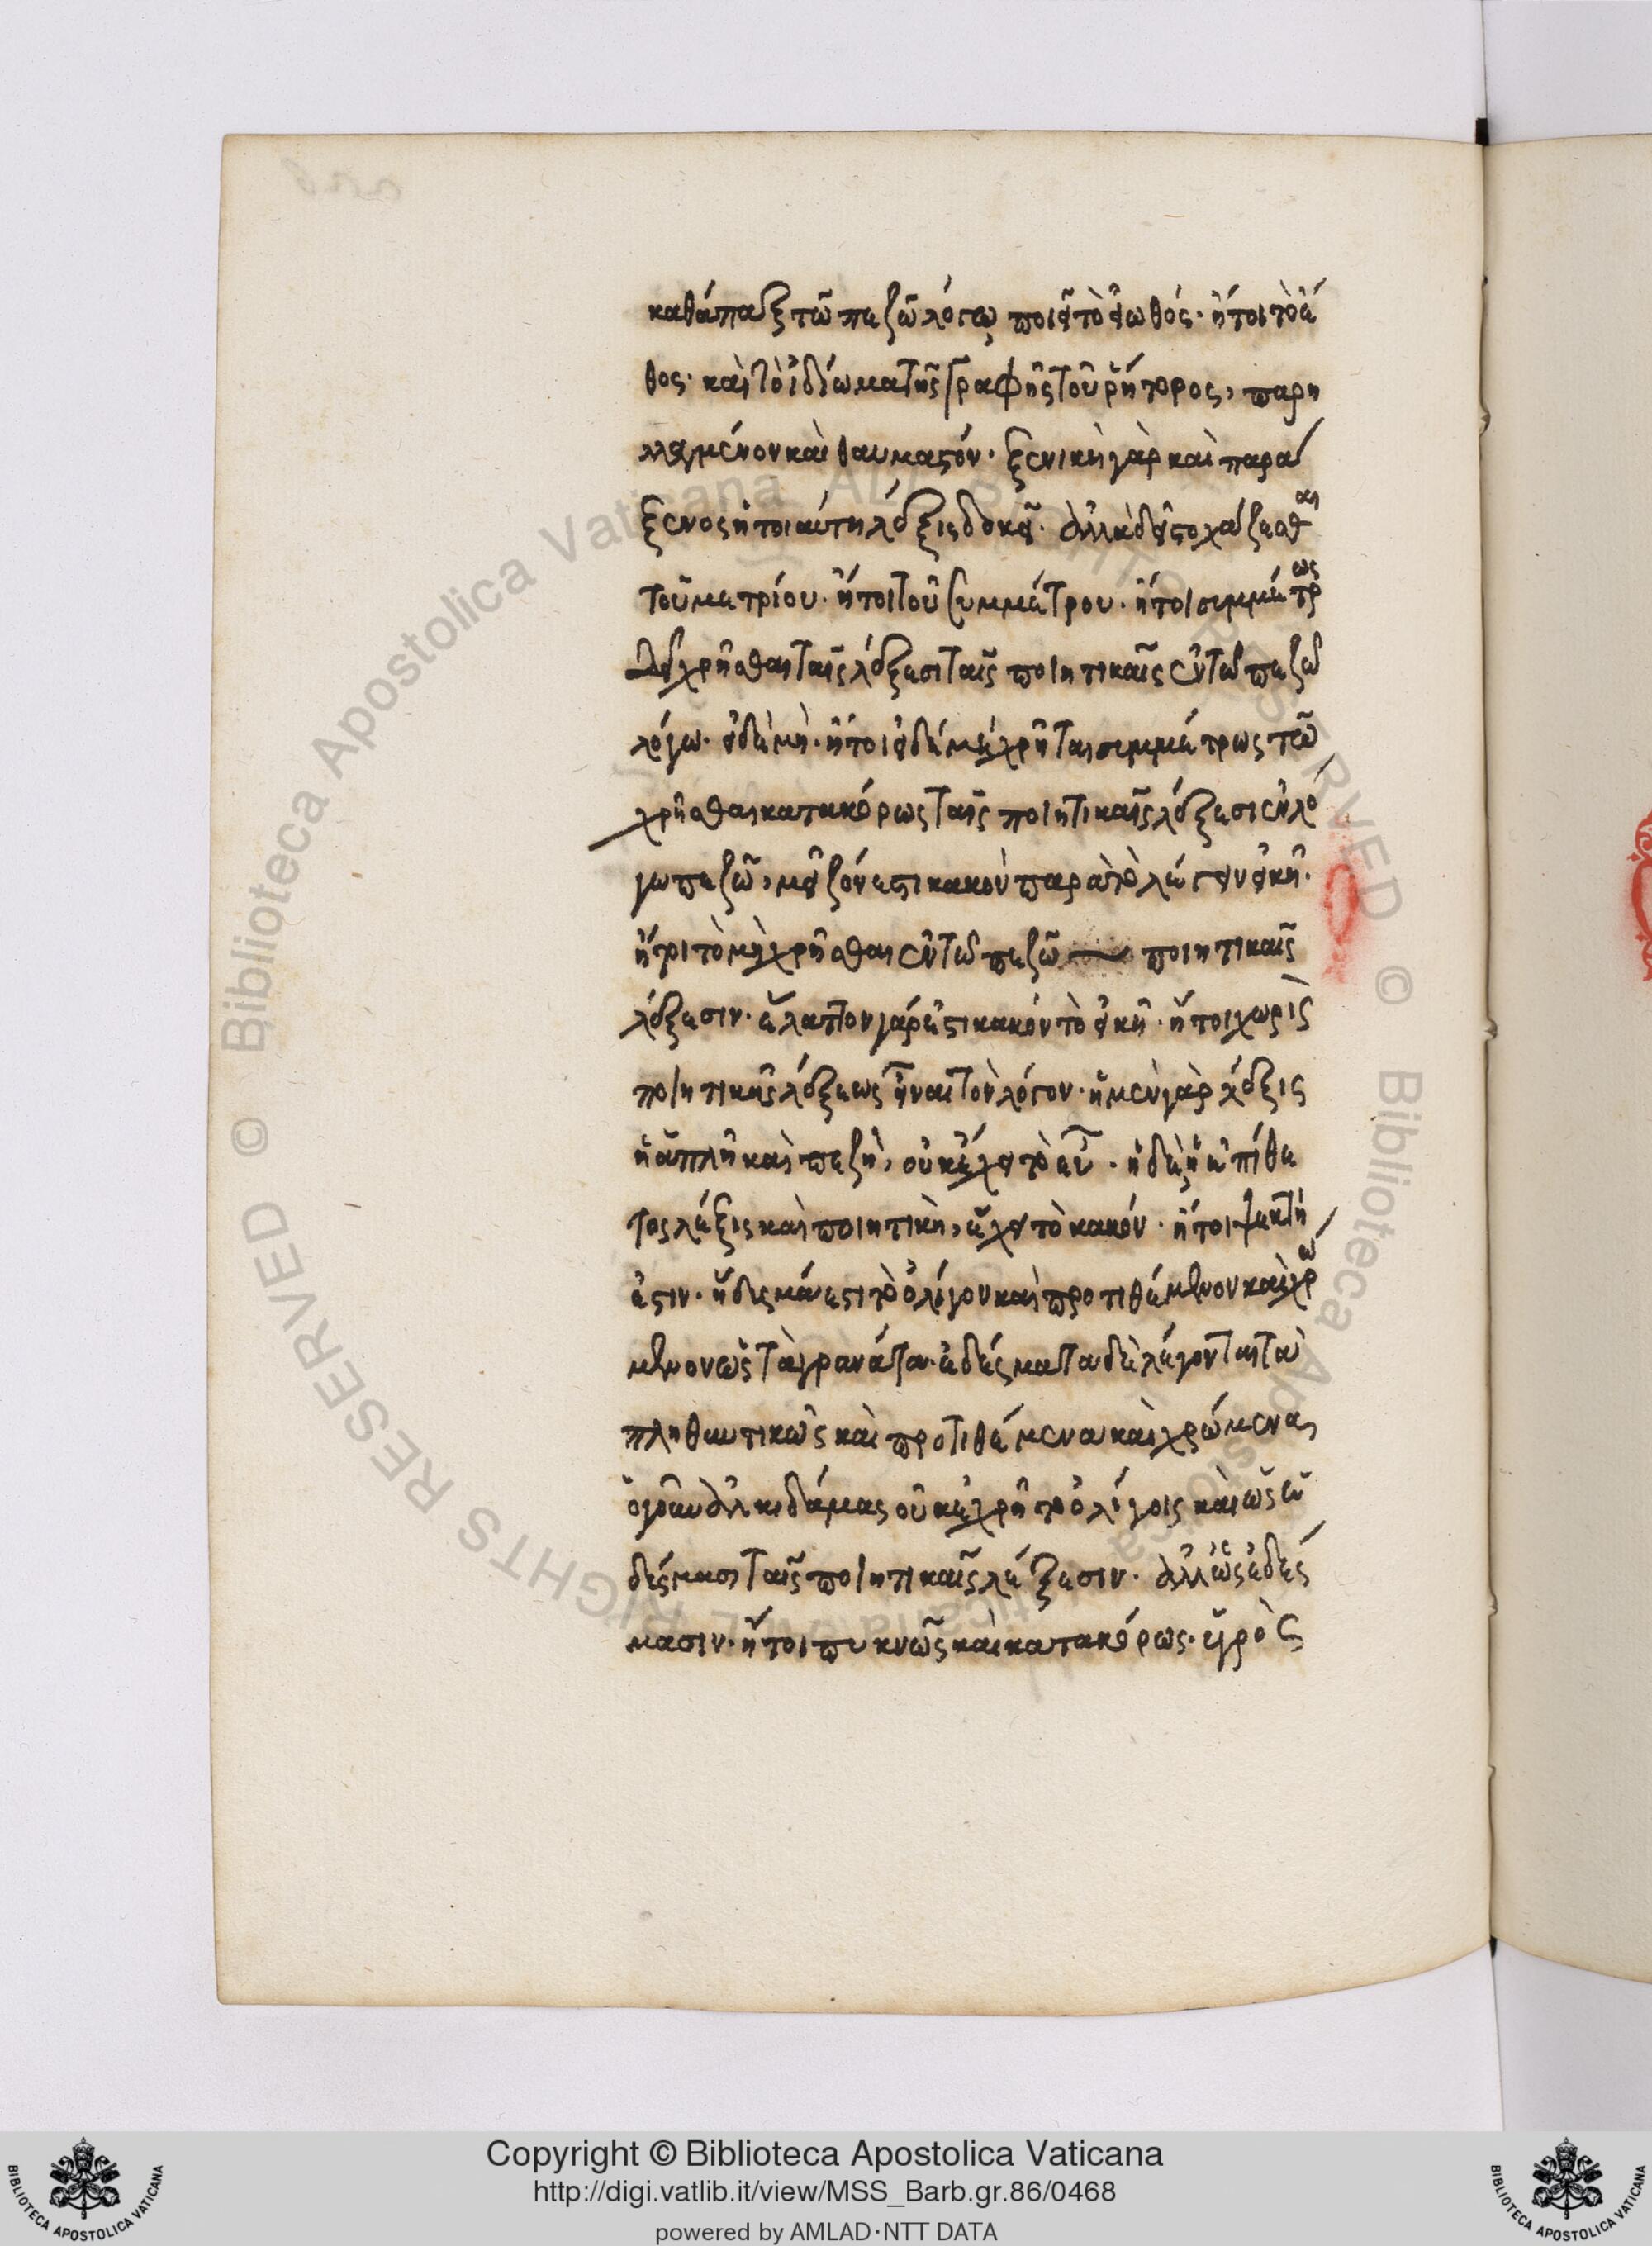 καθάπαξ τῶ πεζῶ λόγω ποιεῖ τὸ εἰωθός· ἤτοι τὸ ἔ
θος· καὶ τὸ ἰδίωμα τῆς γραφῆς τοῦ ῥήτορος, παρη
λλαγμένον καὶ θαυμαστόν· ξενικὴ γὰρ καὶ παρά
ξενος ἡ τοιαύτη λέξις δοκεῖ· ἀλλὰ δεῖ στοχάζεσθαι
τοῦ μετρίου· ἤτοι τοῦ συμμέτρου· ἤτοι συμμέτρως
δεῖ χρῆσθαι ταῖς λέξεσι ταῖς ποιητικαῖς ἐν τῶ πεζῶ
λόγω· εἰ δὲ μὴ· ἤτοι εἰ δὲ μὴ χρῆται συμμέτρως τῶ
χρῆσθαι κατακόρως ταῖς ποιητικαῖς λέξεσι ἐν λό
γω πεζῶ, μεῖζόν ἐστι κακὸν παρὰ τὸ λέγειν εἰκῆ·
ἤτοι τὸ μὴ χρῆσθαι ἐν τῶ πεζῶ ποιητικαῖς
λέξεσιν· ἔλαττον γάρ ἐστι κακόν τὸ εἰκῆ· ἤτοι χωρὶς
ποιητικῆς λέξεως εἶναι τὸν λόγον· ἡ μὲν γὰρ λέξις
ἡ ἁπλῆ καὶ πεζὴ, οὐκ ἔχει τὸ εὖ· ἡ δὲ ἡ ἐπίθε
τος λέξις καὶ ποιητικὴ, ἔχει τὸ κακόν· ἤτοι ψεκτή
ἐστιν· ἥδεσμά ἐστι τὸ ὀλίγον καὶ προτιθέμενον καὶ χρώ
μενον ὡς τὰ γρανάτα· ἐδέσματα δὲ λέγονται τὰ
πληθυντικῶς καὶ προτιθέμενα καὶ χρώμενα,
ὁ γοῦν ἀλκιδάμας οὐκ ἐχρῆτο ὀλίγοις καὶ ὡς ἡ
δέσμασι ταῖς ποιητικαῖς λέξεσιν· ἀλλ' ὡς ἐδέσ
μασιν· ἤτοι πυκνῶς καὶ κατακόρως·